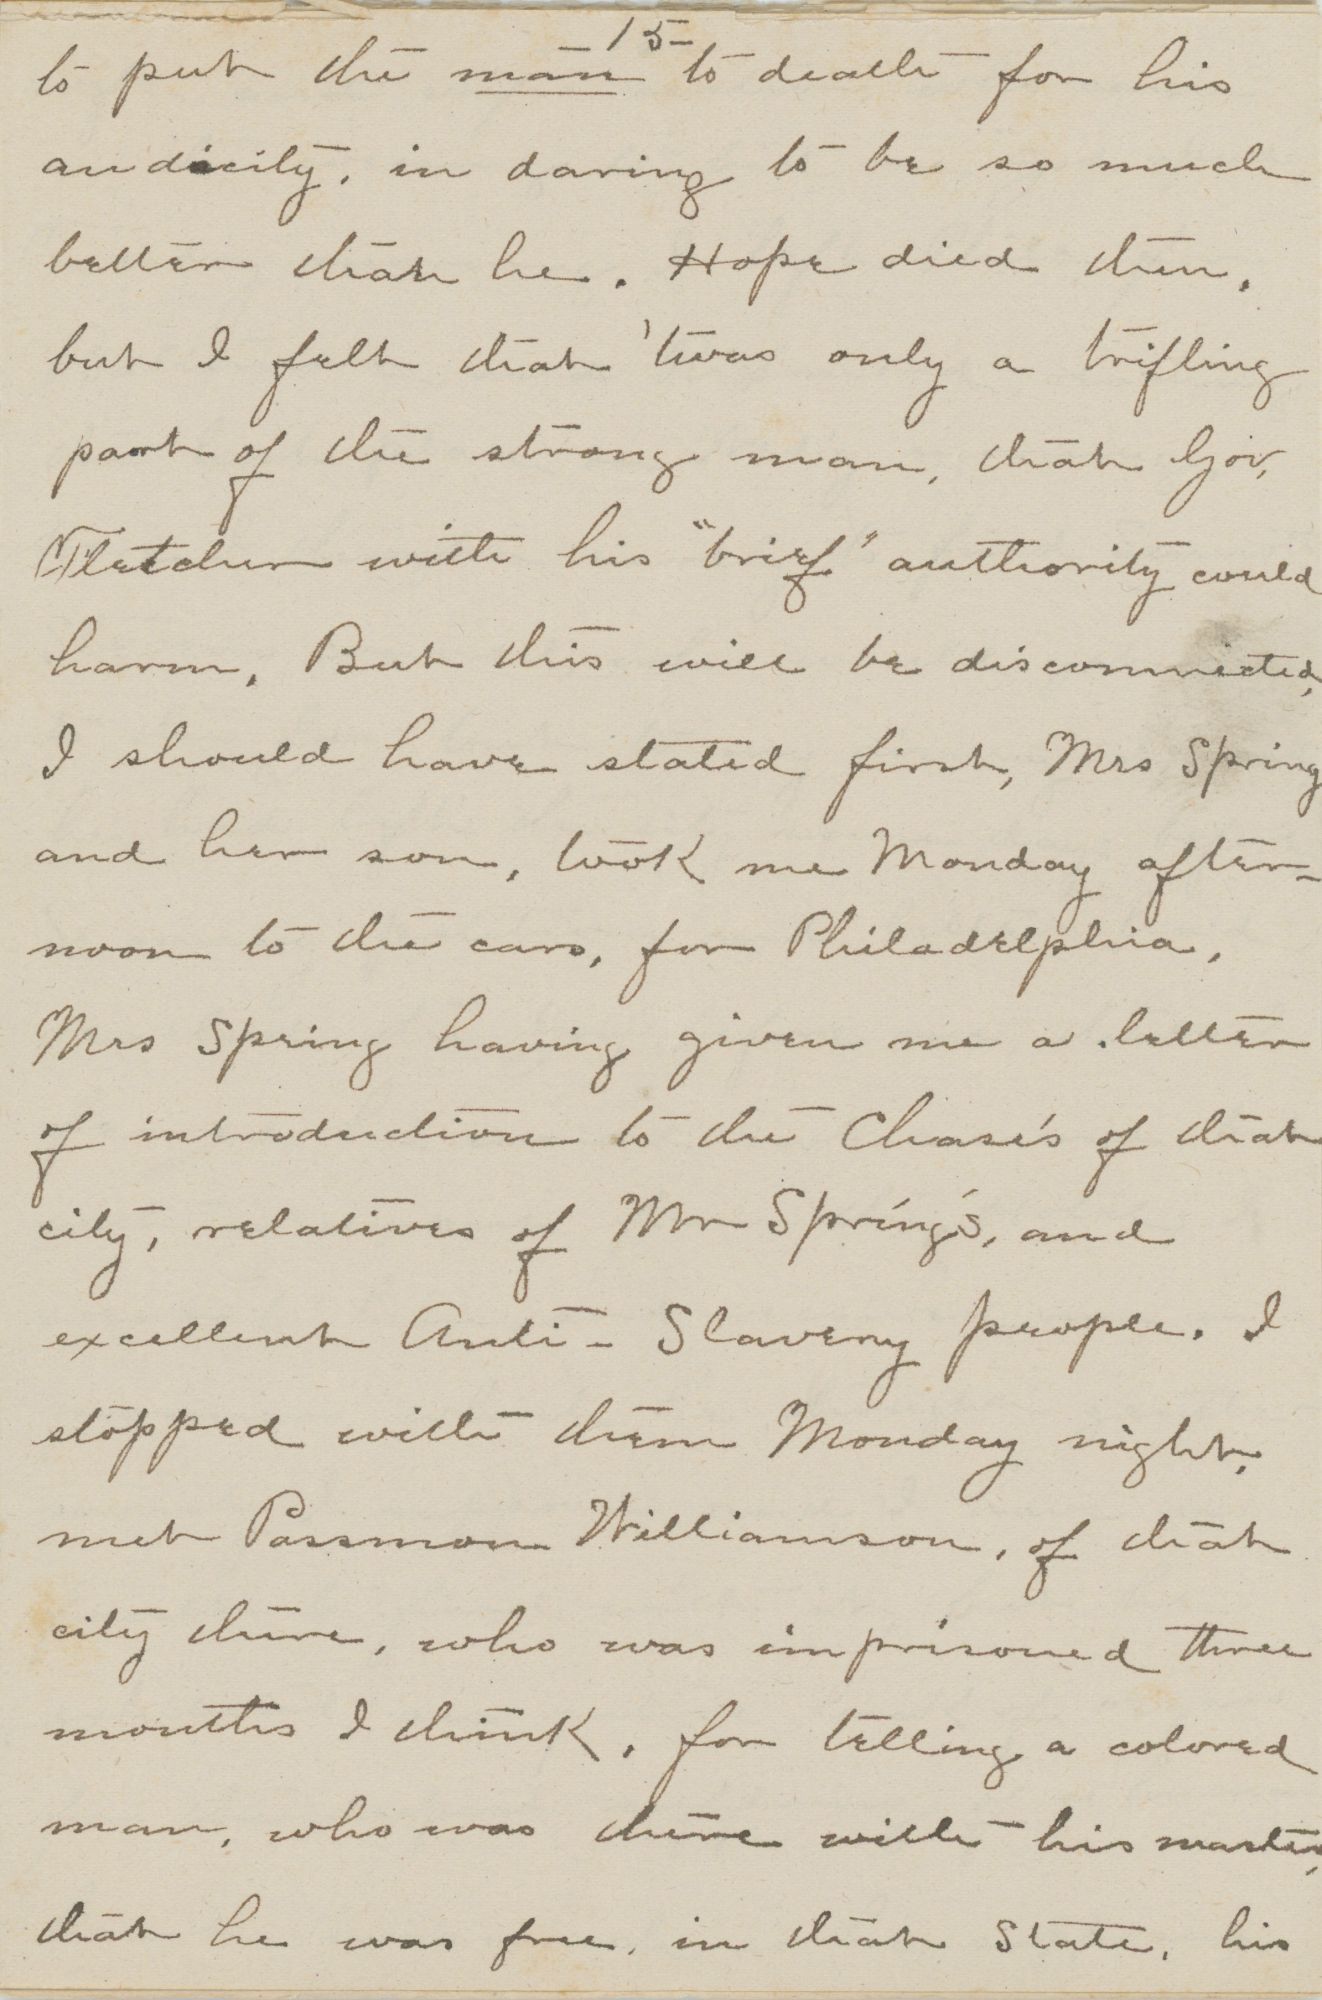 15-
to put the man to death for his
audicity, in daring to be so much
better than he. Hope died then,
but I felt that 'twas only a trifling
part of the strong man, that Gov,
Fletcher with his "brief" authority could
harm. But this will be disconnected,
I should have stated first, Mrs Spring
and her son, took me Monday after-
noon to the cars, for Philadelphia,
Mrs Spring having given me a letter
of introduction to the Chase's of that
city, relatives of Mr Spring's, and
excellent Anti-Slavery people. I
stopped with them Monday night,
met Passmore Williamson, of that
city there, who was imprisoned three
months I think, for telling a colored
man, who was there with his master,
that he was free, in that State, his